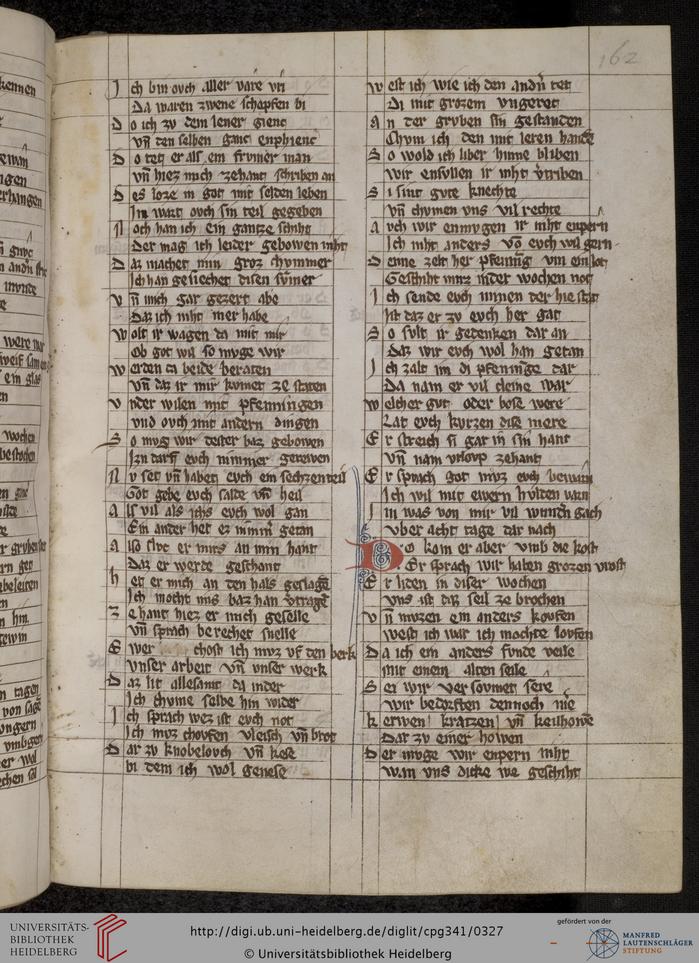 162
J ch bin ovch aller vare vri
Da waren zwene schepfen bi
D o ich zv dem iener gienc
vn̄ den selben ganc enphienc
D o tet er als ein frvmer man
vn̄ hiez mich zehant schriben an
D es loze in got mit selden leben
Im wart ovch sin teil gegeben
N och han ich ein gantze schiht
Der mag ich leider gebowen niht
D az machet min groz chvmmer
Ich han gesiechet disen svmer
v n̄ mich gar gezert abe
Daz ich niht mer habe
W olt ir wagen da mit mir
Ob got wil so mvge wir
w erden da beide beraten
vn̄ daz ir mir kvmet ze staten
v nder wilen mit pfenningen
vnd ovch mit andern dingen
S o mvg wir dester baz gebowen
Izn darf evch nimmer gerewen
N v set vn̄ habet evch ein sechzenteil
Got gebe evch salde vn̄ heil
A ls vil als ichs evch wol gan
Ein ander het ez nimm̄ getan
A lso slvc er mirs an min hant
Daz er werde geschant
h et er mich an den hals geslagē
Ich mocht mis baz han v̄tragē
z ehant hiez er mich geselle
vn̄ sprach berechet snelle
E wer chost ich mvz vf den berk
vnser arbeit vn̄ vnser werk
D az lit allesamt da nider
Ich chvme selbe hin wider
J ch sprach wez ist evch not
Ich mvz chovfen vleisch vn̄ brot
D ar zv knobelovch vn̄ kese
bi dem ich wol genese
w est ich wie ich den andn̄ tet
Di mit grozem vngeret
A n der grvben sin gestanden
Chvm ich den mit leren handē
S o wold ich liber hinne bliben
wir ensvllen ir niht v̄triben
S i sint gvte knechte
vn̄ chvmen vns vil rechte
A vch wir enmvgen ir niht enpern
Ich niht anders vō evch wil gern
D enne zelt her pfenning vm ein lot
Geschiht mirz in der wochen not
I ch sende evch iunen der hie stat
Ist daz er zv evch her gat
S o svlt ir gedenken dar an
Daz wir evch wol han getan
J ch zalt im di pfenninge dar
Da nam er vil cleine war
w elcher gvt oder bose were
Lat evch kvrzen dise mere
E r streich si gar in sin hant
vn̄ nam vrlovp zehant
E r sprach got mvz evch bewarn
Ich wil mit ewern hvlden varn
I m was von mir vil wundn̄ gach
vber acht tage dar nach
D o kom er aber vmb die kost
Er sprach wir haben grozen vrost
E r liden in diser wochen
vns ist daz seil ze brochen
v n̄ mvzen ein anders kovfen
west ich war ich mochte lovfen
D a ich ein anders fvnde veile
mit einem alten seile
S er wir versovmet sere
wir bedorften dennoch nie
k erwen kratzen vn̄ keilhowē
Dar zv einer howen
D er mvge wir enpern niht
wan vns dicke we geschiht
UNIVERSITÄTS-
BIBLIOTHEK
HEIDELBERG
http://digi.ub.uni-heidelberg.de/diglit/cpg341/0327
© Universitätsbibliothek Heidelberg
gefördert von der
MANFRED
LAUTENSCHLÄGER
STIFTUNG